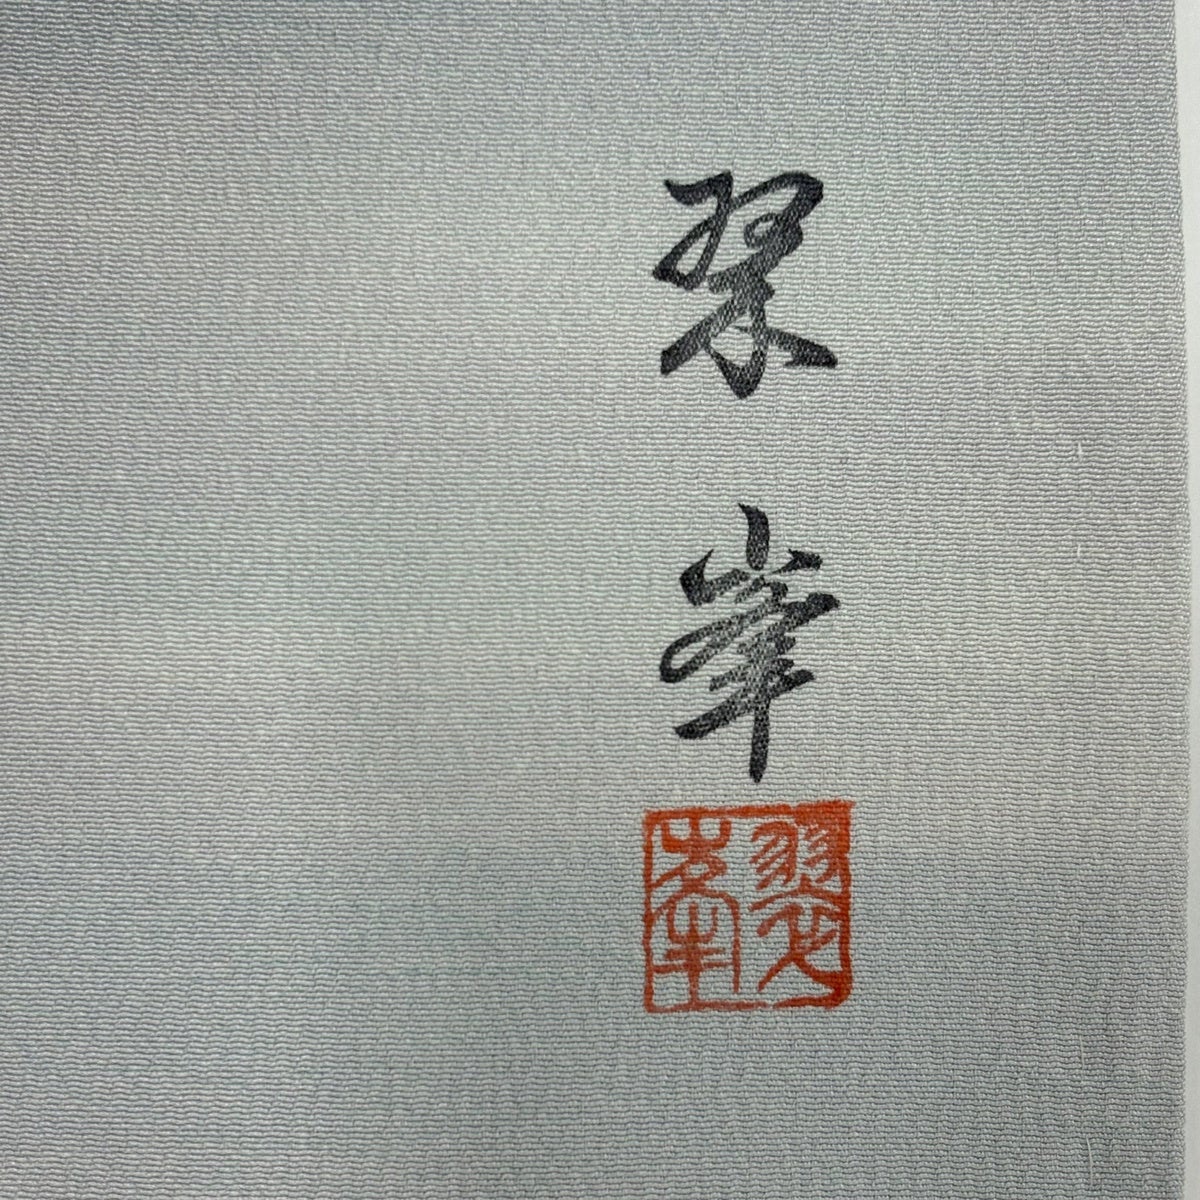 翠
峯
翠峯